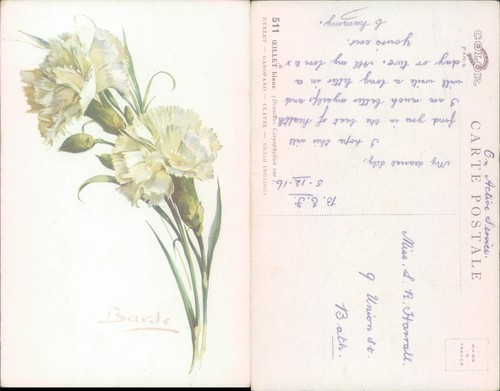 Barde
511 ŒILLET blanc (Dianthus Caryophyllus var.)
CARTE POSTALE
On Active Service.
B.E.F.
5-12-16
My dearest Lily,
I hope this will
find you in the best of health
I am much better myself, and
will write a long letter in a
day or two. With my love & x
Yours ever,
Miss. L. R. Harrall.
9 Union St.
Bath.
MADE
IN
FRANCE
COLOR
PARIS